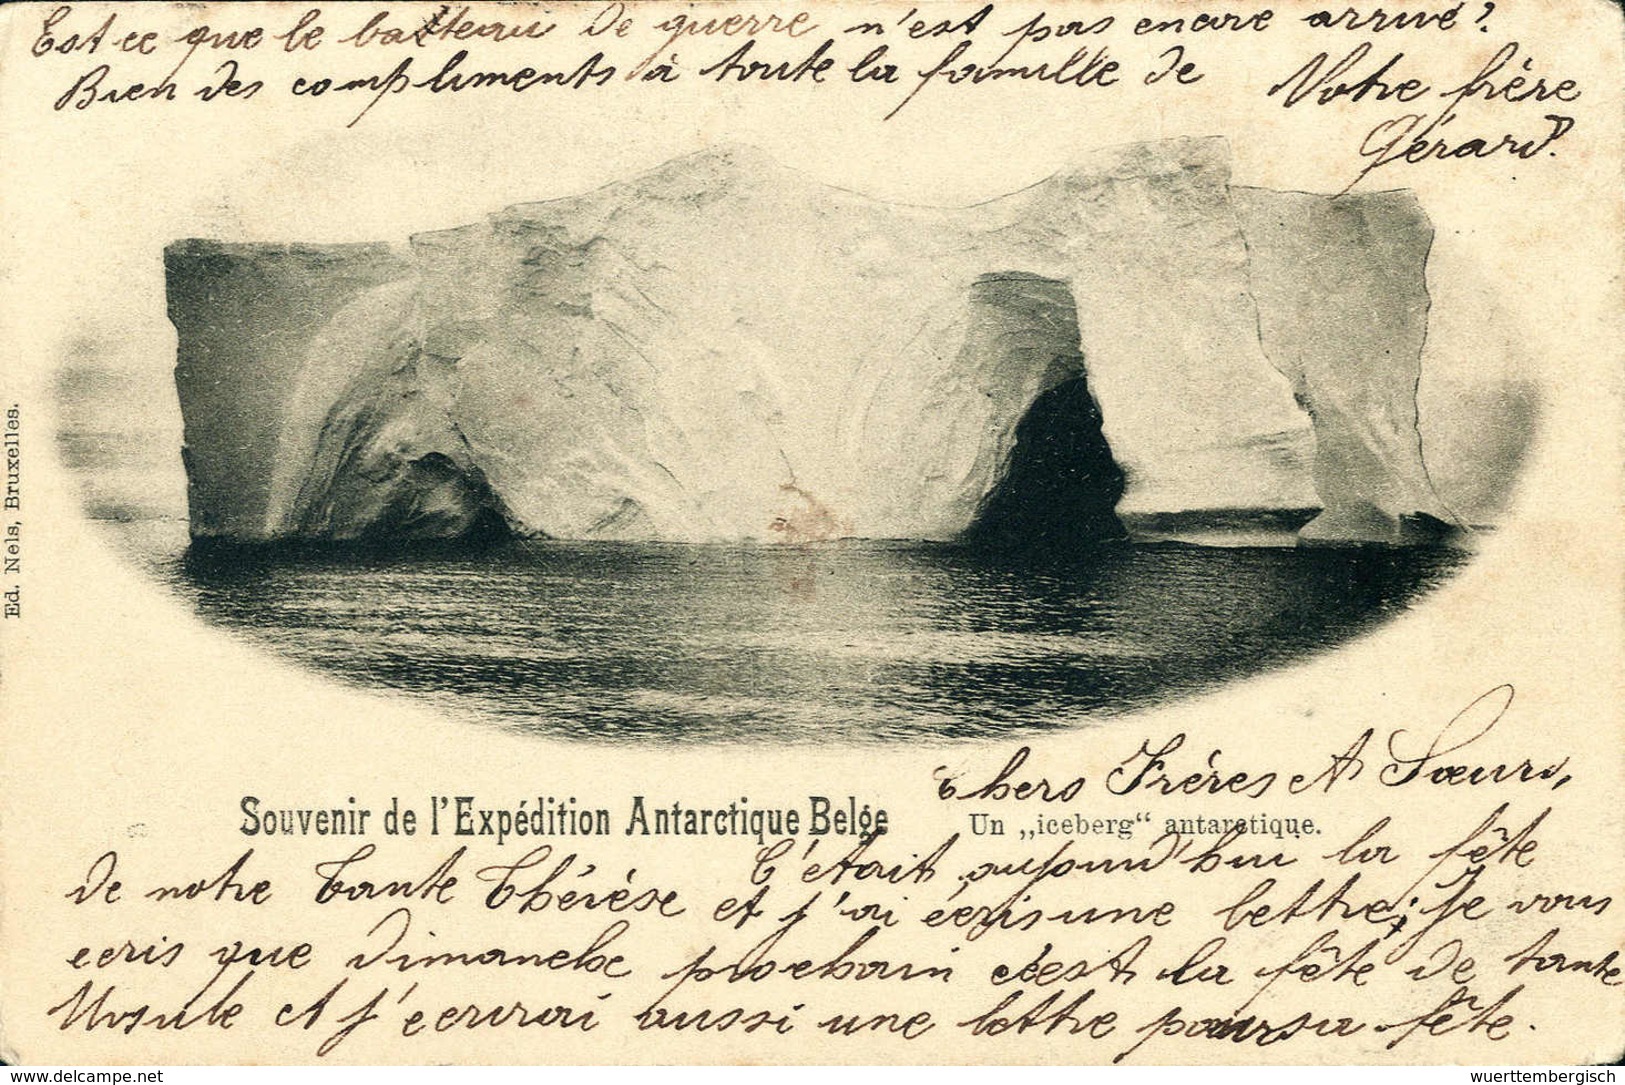 Est ce que le batteau de guerre n'est pas encore arrivé?
Bien des compliments à toute la famille de
Votre frère
Gérard.
Ed. Nels, Bruxelles.
Chers Frères et Sœurs,
Souvenir de l'Expédition Antarctique Belge
Un „iceberg“ antarctique.
C'était aujourd'hui la fête
de notre Tante Thérèse et j'ai écris une lettre; Je vous
ecris que dimanche prochain c'est la fête de tante
Ursule et j'ecrirai aussi une lettre pour sa fête.
www.delcampe.net
wuerttembergisch